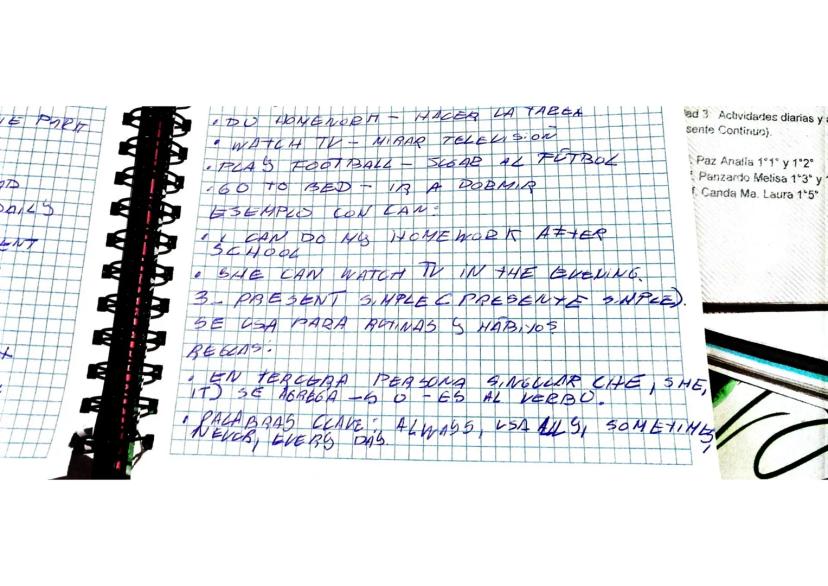 E PARA
DAILY
ENT
• DO HOMEWORK – HACER LA TAREA
• WATCH TV – MIRAR TELEVISIÓN
• PLAY FOOTBALL – JUGAR AL FÚTBOL
• GO TO BED – IR A DORMIR
EJEMPLO CON CAN:
• I CAN DO MY HOMEWORK AFTER
SCHOOL
• SHE CAN WATCH TV IN THE EVENING.
3_ PRESENT SIMPLE (PRESENTE SIMPLE).
SE USA PARA RUTINAS Y HÁBITOS
REGLAS:
• EN TERCERA PERSONA SINGULAR (HE, SHE,
IT) SE AGREGA -S O -ES AL VERBO.
• PALABRAS CLAVE: ALWAYS, USALLY, SOMETIMES,
NEVER, EVERY DAY.
ad 3: Actividades diarias y
sente Continuo).
Paz Analía 1°1° y 1°2°
Panzardo Melisa 1°3° y 1
f. Canda Ma. Laura 1°5°